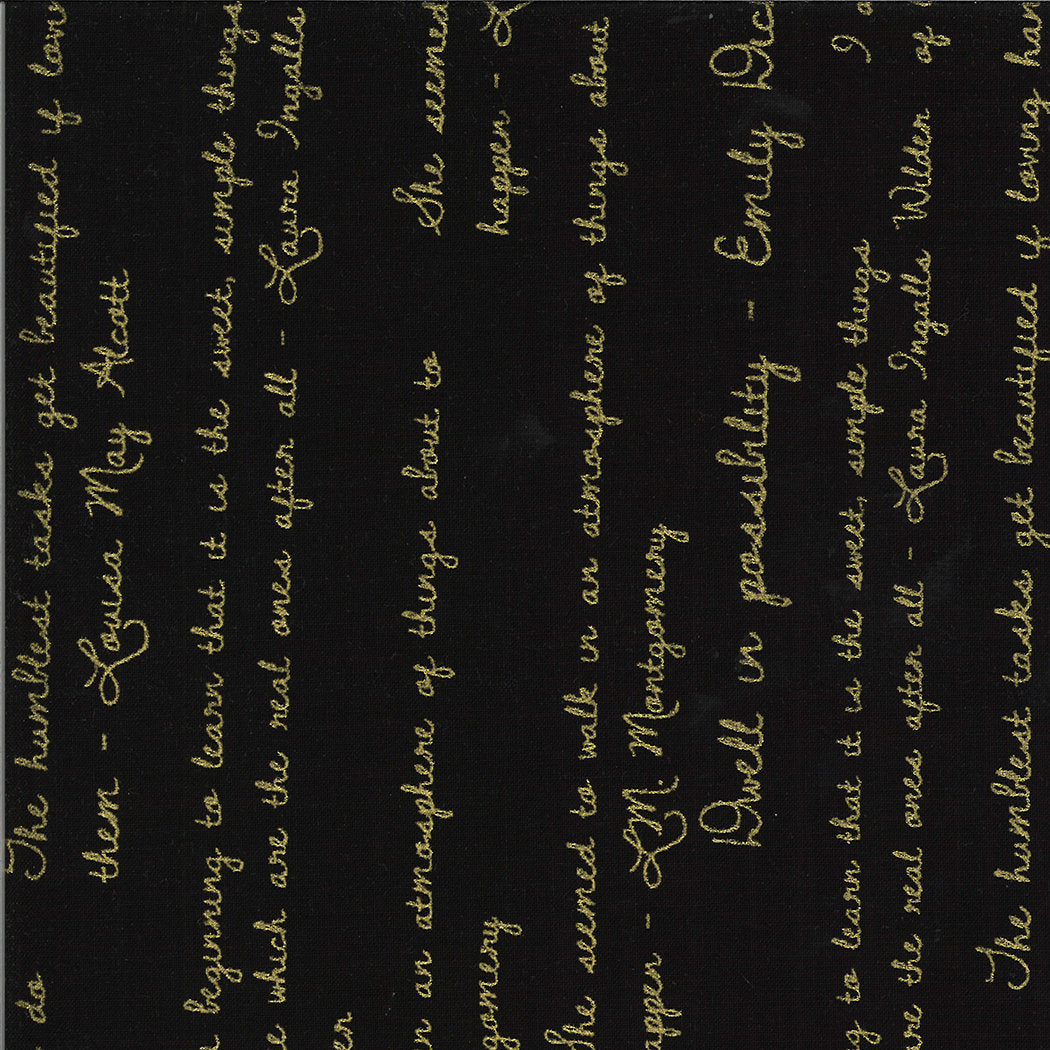 do The humblest tasks get beautified if lovi
them - Louisa May Alcott
beginning to learn that it is the sweet, simple things
which are the real ones after all - Laura Ingalls
er
n an atmosphere of things about to She seemed
gomery happen - L
She seemed to walk in an atmosphere of things about
appen - L.M. Montgomery
Dwell in possibility - Emily Dic
g to learn that it is the sweet, simple things I a
re the real ones after all - Laura Ingalls Wilder of
The humblest tasks get beautified if loving han